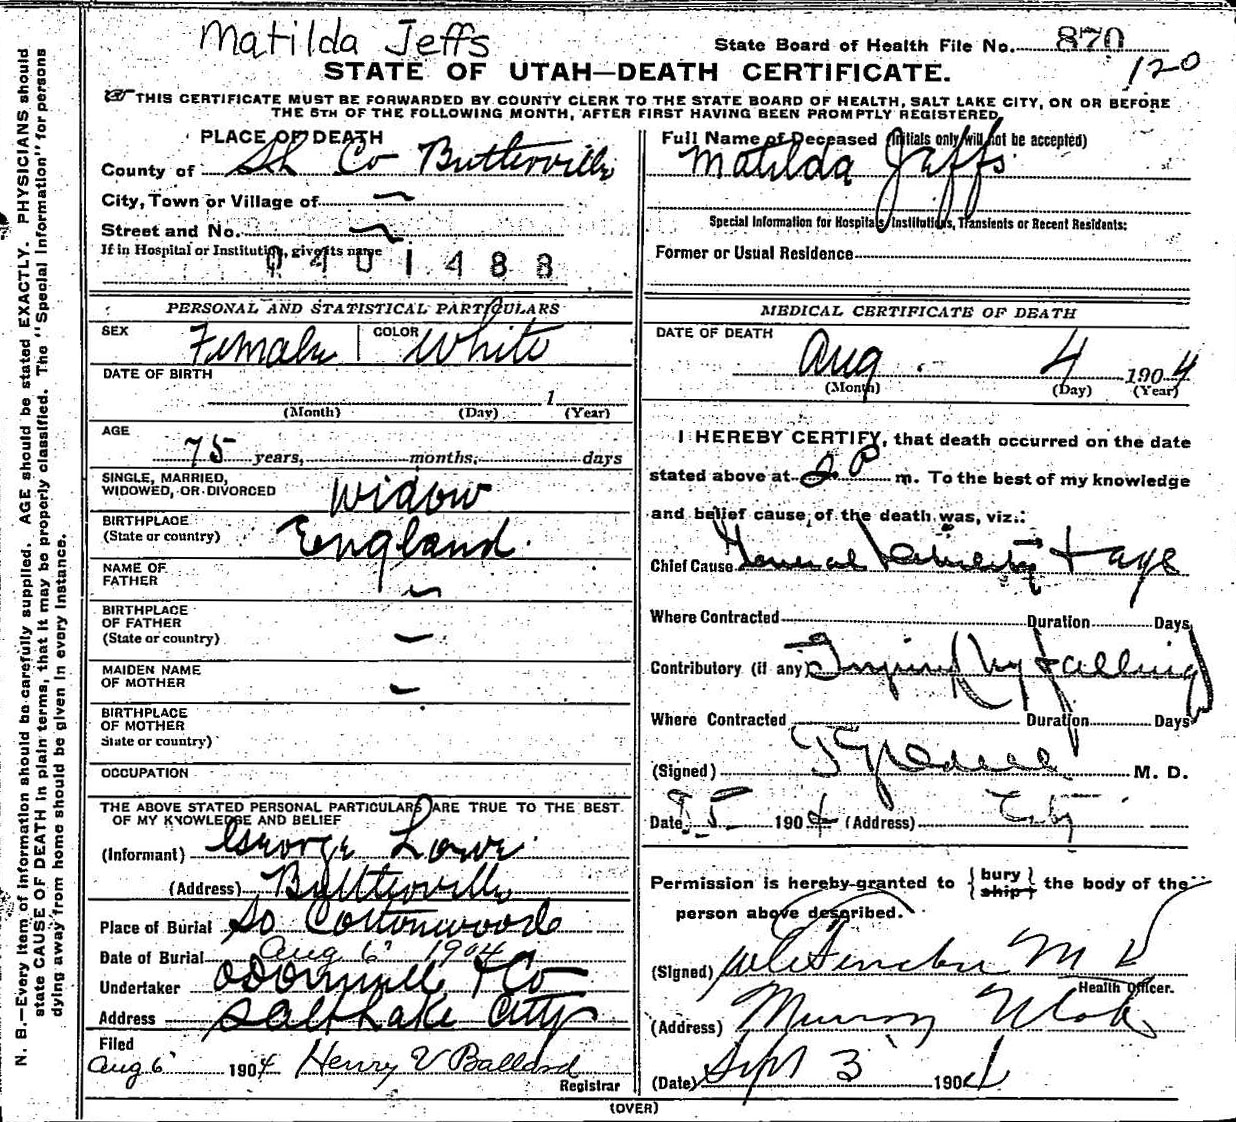 Matilda Jeffs
State Board of Health File No. 870
120
STATE OF UTAH—DEATH CERTIFICATE.
THIS CERTIFICATE MUST BE FORWARDED BY COUNTY CLERK TO THE STATE BOARD OF HEALTH, SALT LAKE CITY, ON OR BEFORE
THE 5TH OF THE FOLLOWING MONTH, AFTER FIRST HAVING BEEN PROMPTLY REGISTERED
PLACE OF DEATH
County of Co Butlerville
City, Town or Village of
Street and No.
If in Hospital or Institution, give its name
0401488
PERSONAL AND STATISTICAL PARTICULARS
SEX Female COLOR White
DATE OF BIRTH
1
(Month) (Day) (Year)
AGE
75 years, months, days
SINGLE, MARRIED,
WIDOWED, OR DIVORCED Widow
BIRTHPLACE
(State or country) England.
NAME OF
FATHER
BIRTHPLACE
OF FATHER
(State or country)
MAIDEN NAME
OF MOTHER
BIRTHPLACE
OF MOTHER
State or country)
OCCUPATION
THE ABOVE STATED PERSONAL PARTICULARS ARE TRUE TO THE BEST
OF MY KNOWLEDGE AND BELIEF
(Informant) George Lowe
(Address) Butlerville
Place of Burial So Cottonwood
Date of Burial Aug 6 1904
Undertaker ODonnell & Co
Address Salt Lake City
Filed
Aug 6 1904 Henry V Ballard
Registrar
Full Name of Deceased (Initials only will not be accepted)
Matilda Jeffs
Special Information for Hospitals, Institutions, Transients or Recent Residents:
Former or Usual Residence
MEDICAL CERTIFICATE OF DEATH
DATE OF DEATH
Aug. 4 1904
(Month) (Day) (Year)
I HEREBY CERTIFY, that death occurred on the date
stated above at 2 P m. To the best of my knowledge
and belief cause of the death was, viz.:
Chief Cause General Debility + age
Where Contracted Duration Days
Contributory (if any) Injury by falling
Where Contracted Duration Days
(Signed) M. D.
Date 8 5 1904 (Address) City
Permission is hereby granted to { bury ship } the body of the
person above described.
(Signed) M D
Health Officer.
(Address) Murray Utah
(Date) Sept 3 1904
(OVER)
N. B.—Every item of information should be carefully supplied. AGE should be stated EXACTLY. PHYSICIANS should
state CAUSE OF DEATH in plain terms, that it may be properly classified. The "Special Information" for persons
dying away from home should be given in every instance.